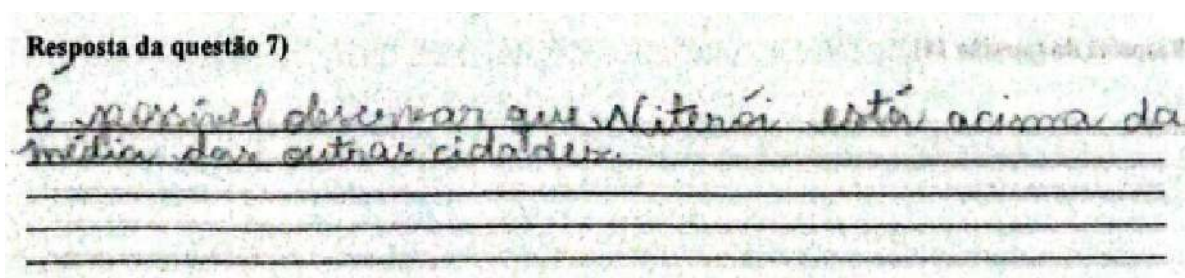 Resposta da questão 7)
É possível observar que Niterói está acima da
média das outras cidades.